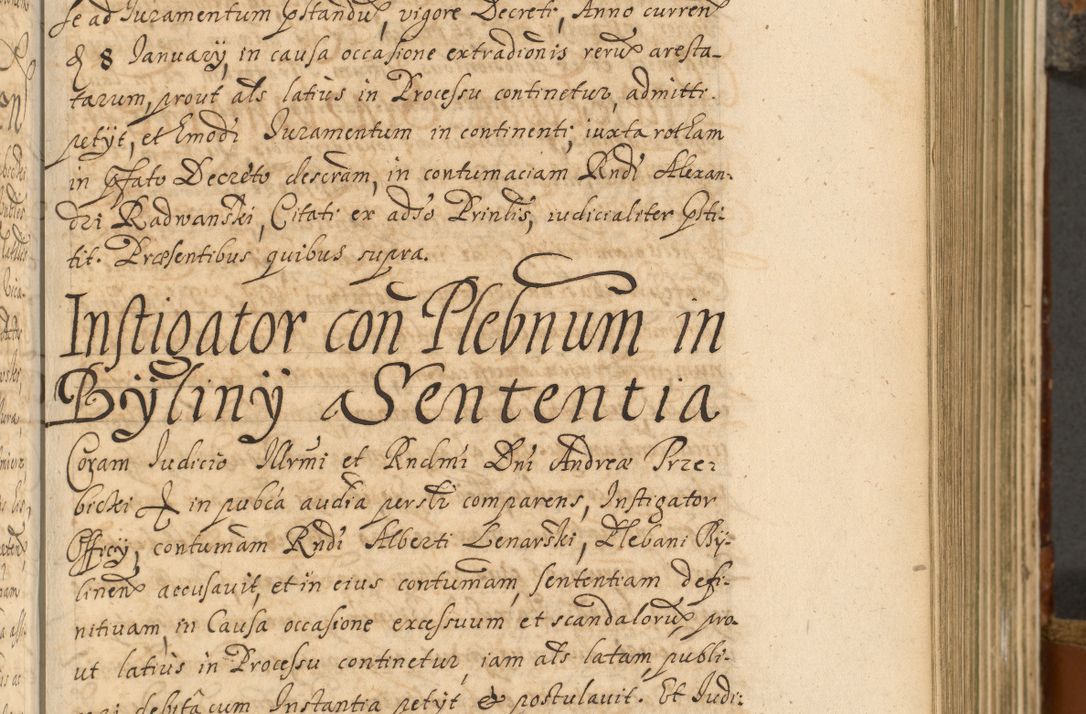 se ad Iuramentum pstandũ, vigore Decreti, Anno curren
8 Ianuarÿ, in causa occasione extradionis rerũ aresta-
tarum, prout als latius in Processu continetur, admitti
petÿt, et hmodi Iuramentum in continenti, iuxta rotham
in pfato Decreto descram, in contumaciam Rndi Alexan-
dri Radwanski, Citati ex adso Prinlis, iudicialiter psti-
tit. Præsentibus quibus supra.
Instigator con Plebnum in
Bÿlinÿ Sententia
Coram Iudicio Illrmi et Rndmi Dni Andreæ Prze-
bicki in pubca audia persli comparens, Instigator
Officÿ, contumam Rndi Alberti Lenarski, Plebani Bÿ-
linen accusavit, et in eius contumam, sententiam defi-
nitivam, in Causa occasione excessuum et scandalorũ, pro-
ut latius in Processu continetur, iam als latam, publi-
cari debita cum Instantia petÿt & postulavit. Et Iudi-